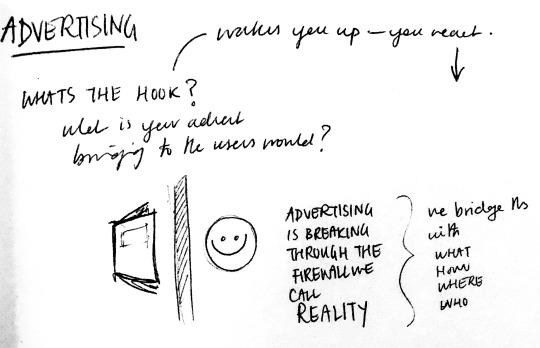 ADVERTISING
wakes you up — you react.
WHATS THE HOOK?
what is your advert
bringing to the users world?
ADVERTISING
IS BREAKING
THROUGH THE
FIREWALL WE
CALL
REALITY
we bridge this
with
WHAT
HOW
WHERE
WHO